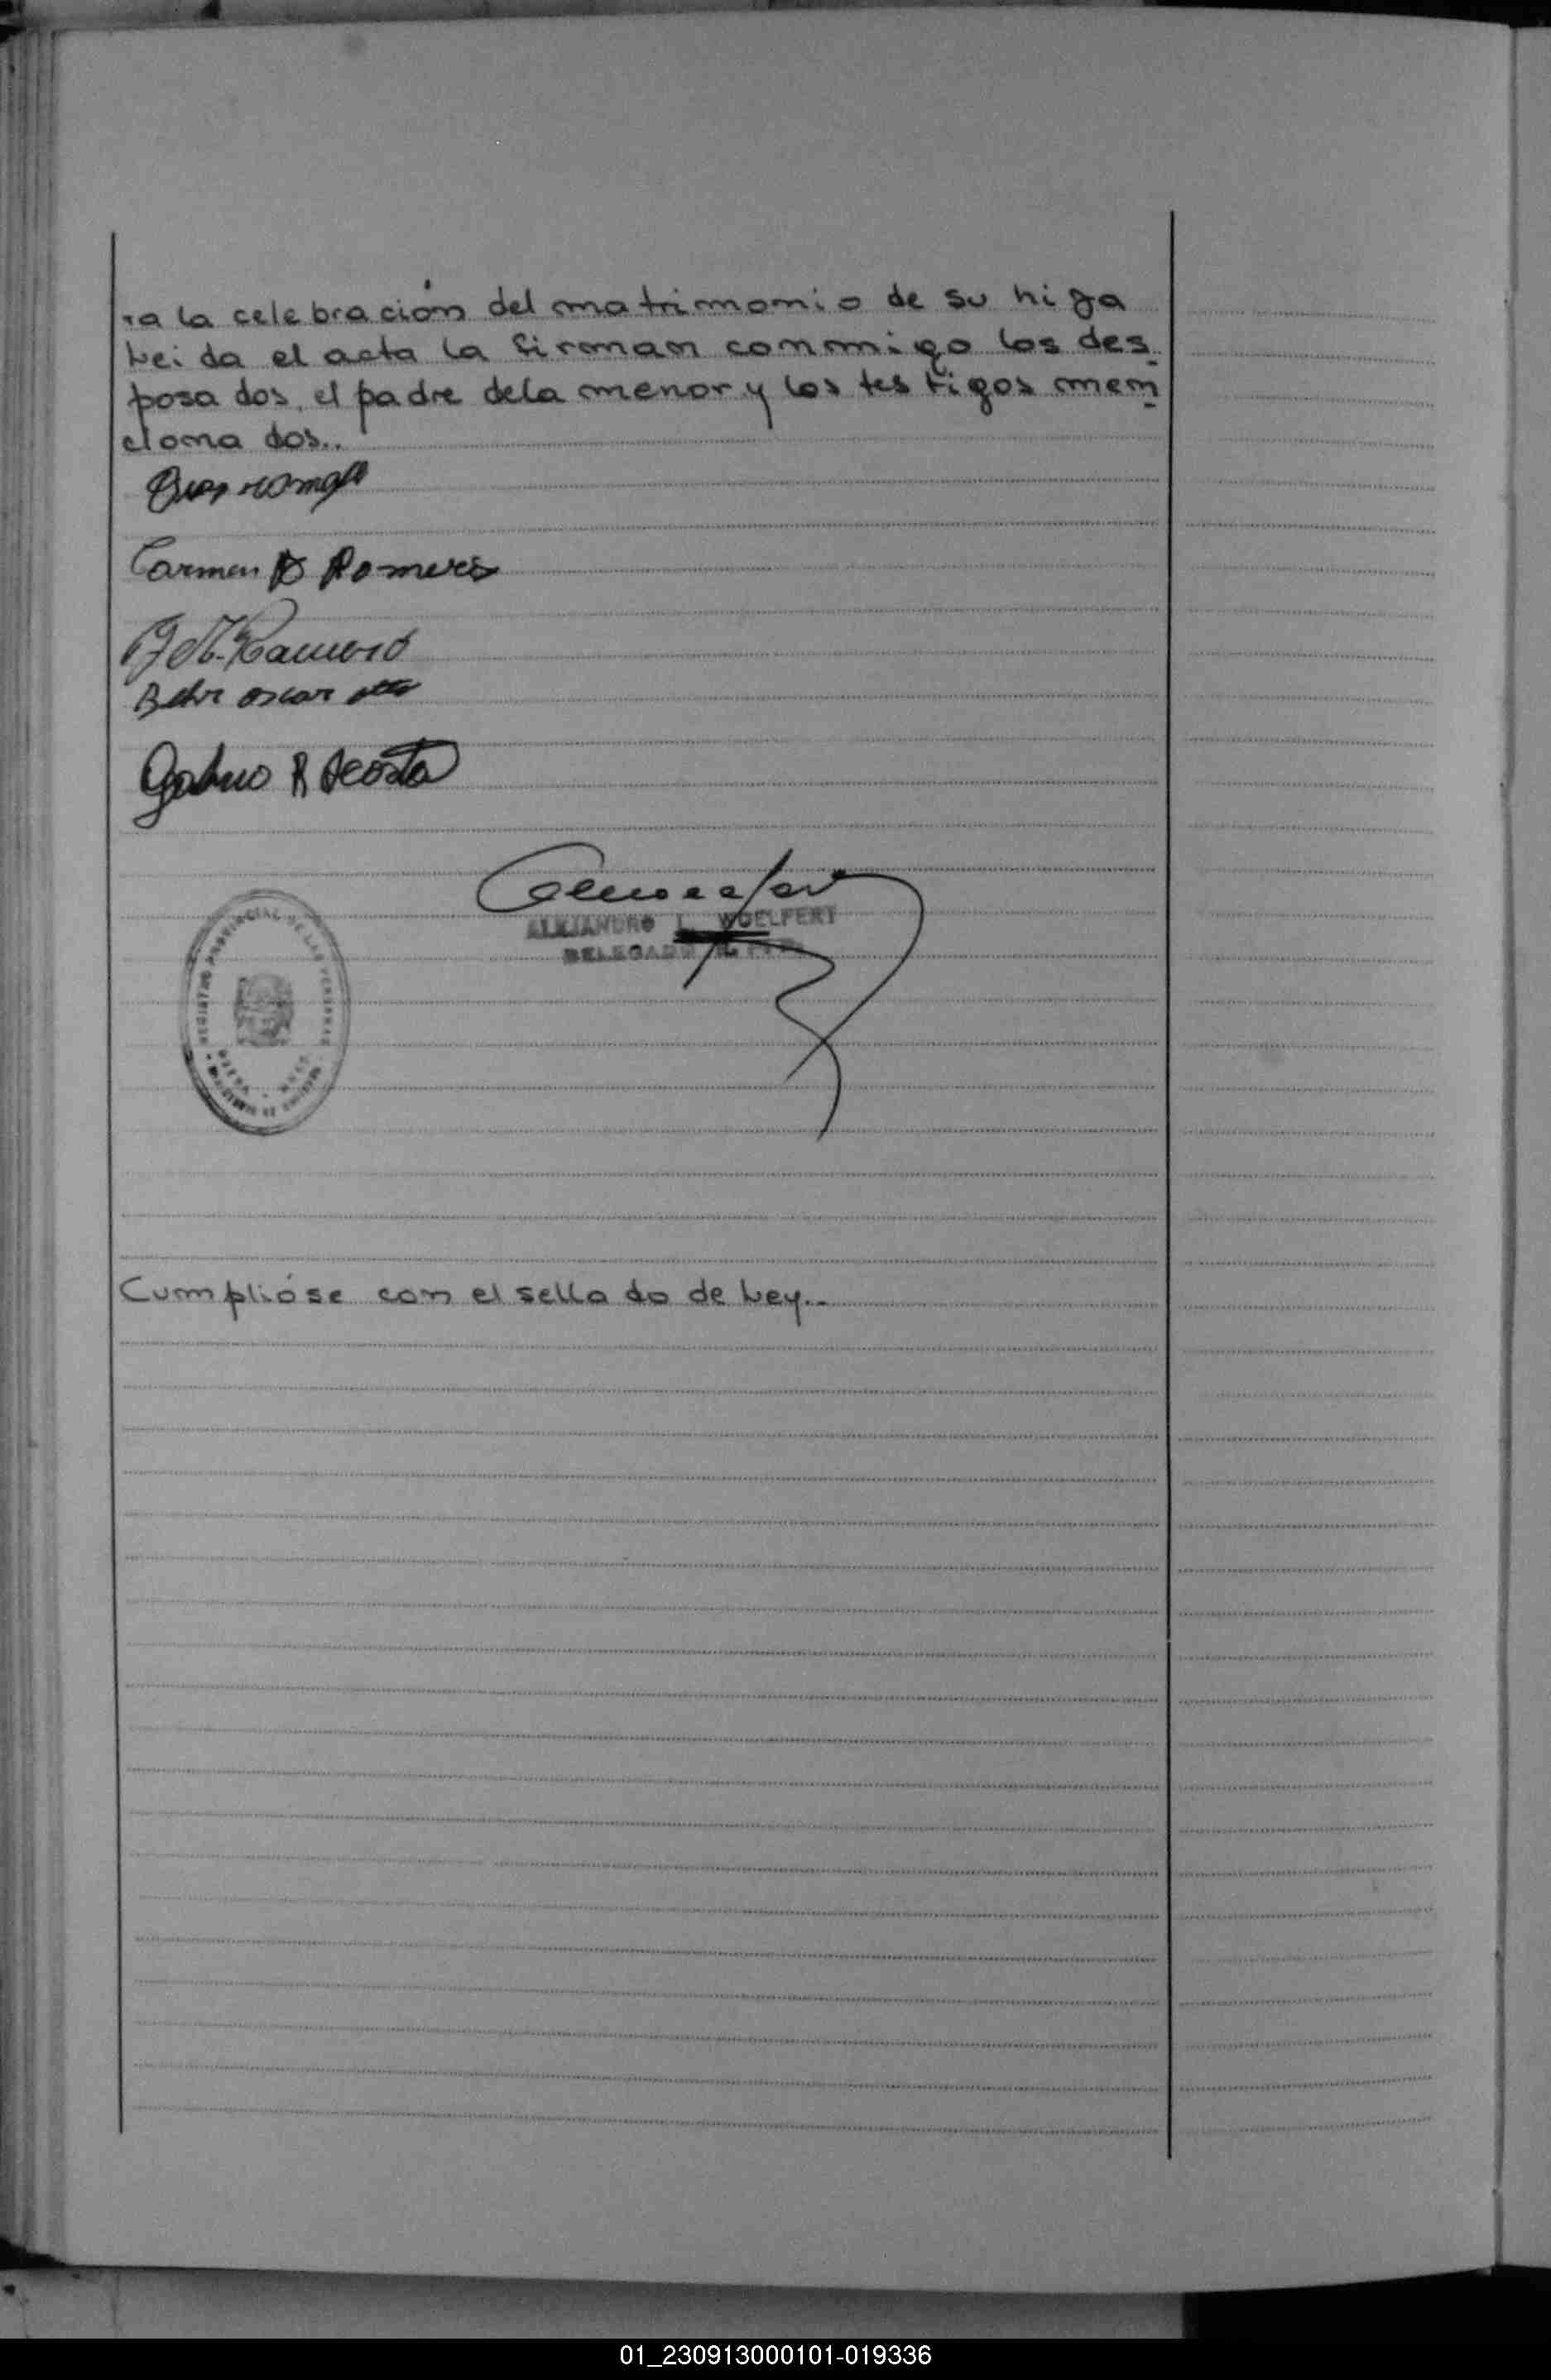 ra la celebración del matrimonio de su hija
Leida el acta la firman conmigo los des
posados, el padre dela menor y los testigos men
cionados..
Carmen Romero
Behr oscar otto
R Acosta
ALEJANDRO L. WOELFERT
DELEGADO
REGISTRO PROVINCIAL DE LAS PERSONAS
Cumplióse con el sellado de Ley..
01_230913000101-019336